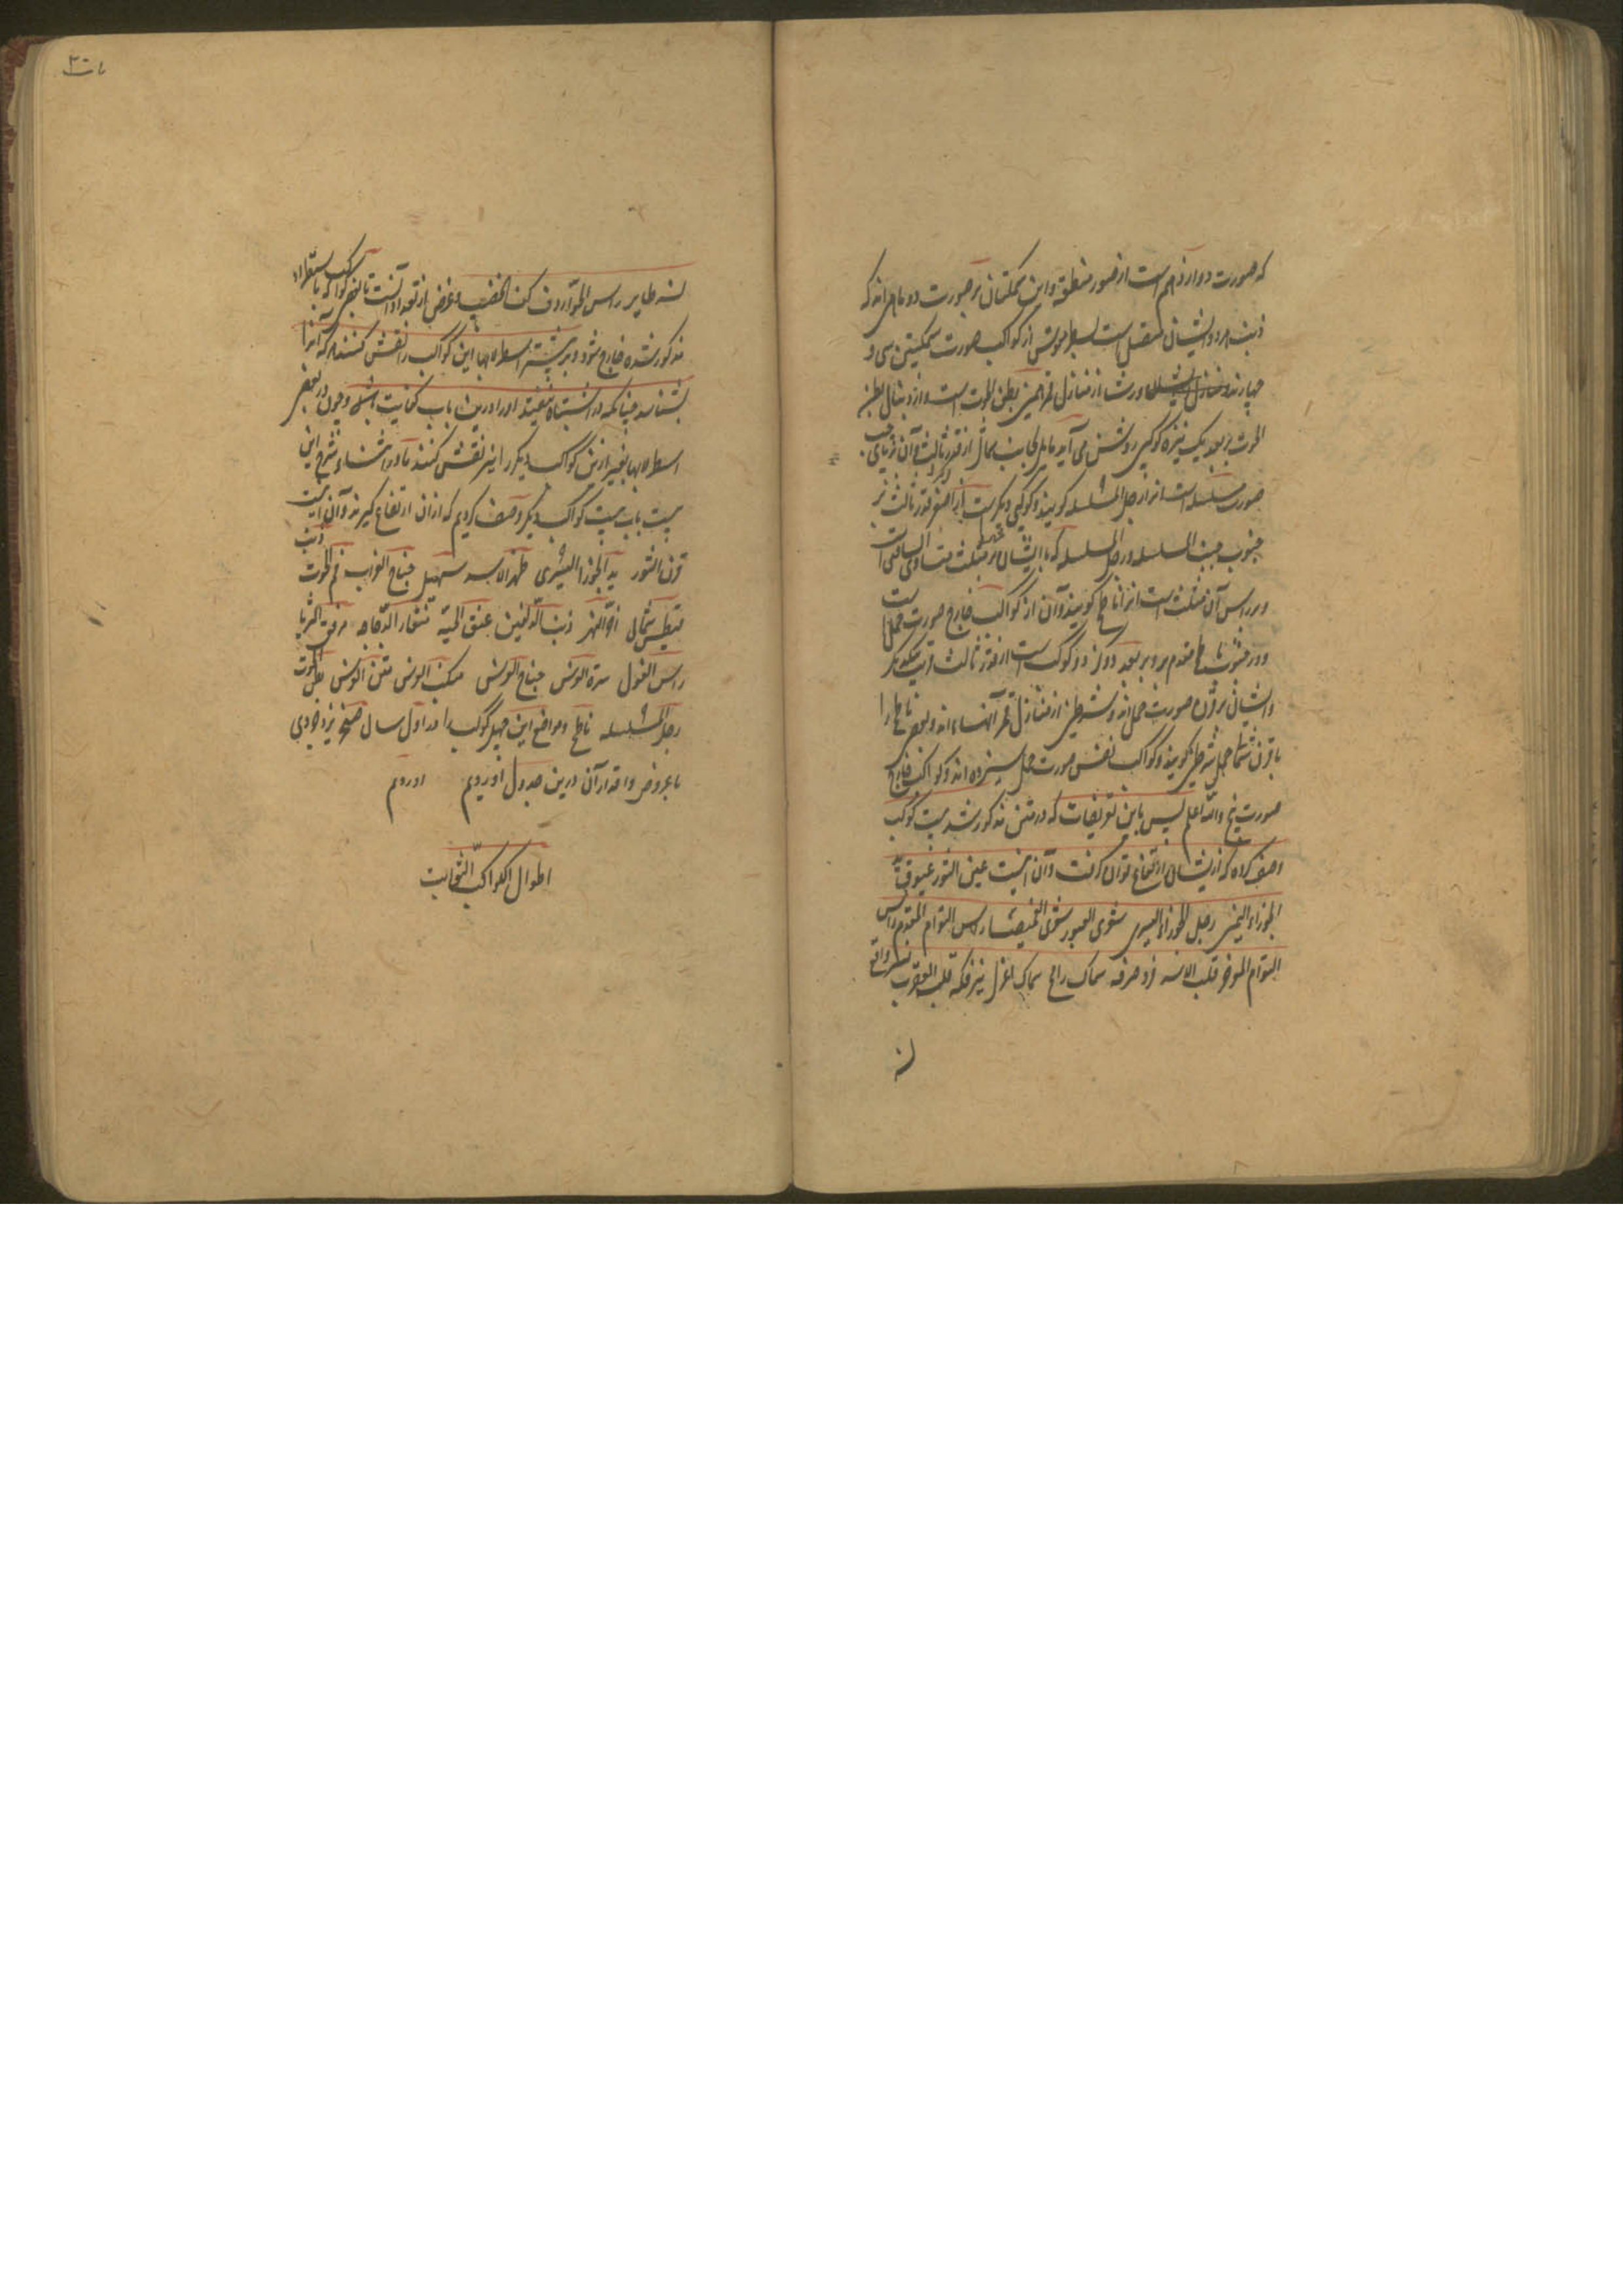 که صورت دوازدهم است از صور منطقه و این سمکتان بر صورت دو ماهی‌اند که
ذنب هر دو ایشان متصل است بسطر موتشی از کواکب صورت سمکتین سی و
چهارند و رشا از منازل قمر همین بطن الحوت است و از دنبال بطن
الحوت ببعد یک نیزه کوکبی روشن می آید مایل بجانب شمال از قدر ثالث و آن نزیای
صورت مسلسله است انرا رجل المسلسله کویند و کوکبی دیکرست از اصغر قدر ثالث بر
جنوب جنب المسلسله و رجل المسلسله که با ایشان بر مثلث متساوی الساقین است
و بر راس آن مثلث است انرا ناطح کویند و آن از کواکب خارج صورت حمل است
و در جنوب ناطح مقدم برو ببعد دو کز دو کوکب است از قدر ثالث قریب بیکدیکر
و ایشان بر قرن صورت حمل‌اند و شرطین از منازل قمر آنهااند و بعضی ناطح را
با قرن شمالی حمل شرطین کویند و کواکب نفس صورت حمل سیزده‌اند و کواکب خارج
صورت پنج والله اعلم پس باین تعریفات که در متن مذکور شد بیست کوکب
وصف کرده که از ایشان ارتفاع توان کرفت و آن اینست عین الثور عیوق ید
الجوزاء الیمنی رجل الجوزاء الیسری شعری العبور شعری الغمیصا راس التوام المقدم راس
التوام الموخر قلب الاسد فرد صرفه سماک رامح سماک اعزل نیر فکه قلب العقرب نسر واقع
نسر
۳۰
نسر طایر راس الحوا ردف کف الخضیب و غرض از تعداد آنست تا بعضی کواکب که باستطراد
مذکور شده خارج شود و بر بیشتر اسطرلابها این کواکب را نقش کنند هر که آنرا
بشناسد چنانکه در اشتباه نیفتد او را درین باب کفایت باشد و چون در بعضی
اسطرلابها بغیر ازین کواکب دیکر را نیز نقش کنند ما در اثناء شرح این
بیست باب بیست کواکب دیکر وصف کردیم که ازان ارتفاع کیرند و آن اینست
قرن الثور ید الجوزا الیسری ظهر الاسد سهیل جناح الغراب فم الحوت ذنب
قیطس شمالی آخر النهر ذنب الدلفین عنق الحیه منقار الدجاجه مرفق الثریا
راس الغول سرة الفرس جناح الفرس منکب الفرس متن الفرس بطن الحوت
رجل المسلسله ناطح و مواضع این چهل کوکب را در اول سال یزدجردی
با عروض و اقدار آن درین جدول آوردیم اوردیم
اطوال الکواکب الثوابت